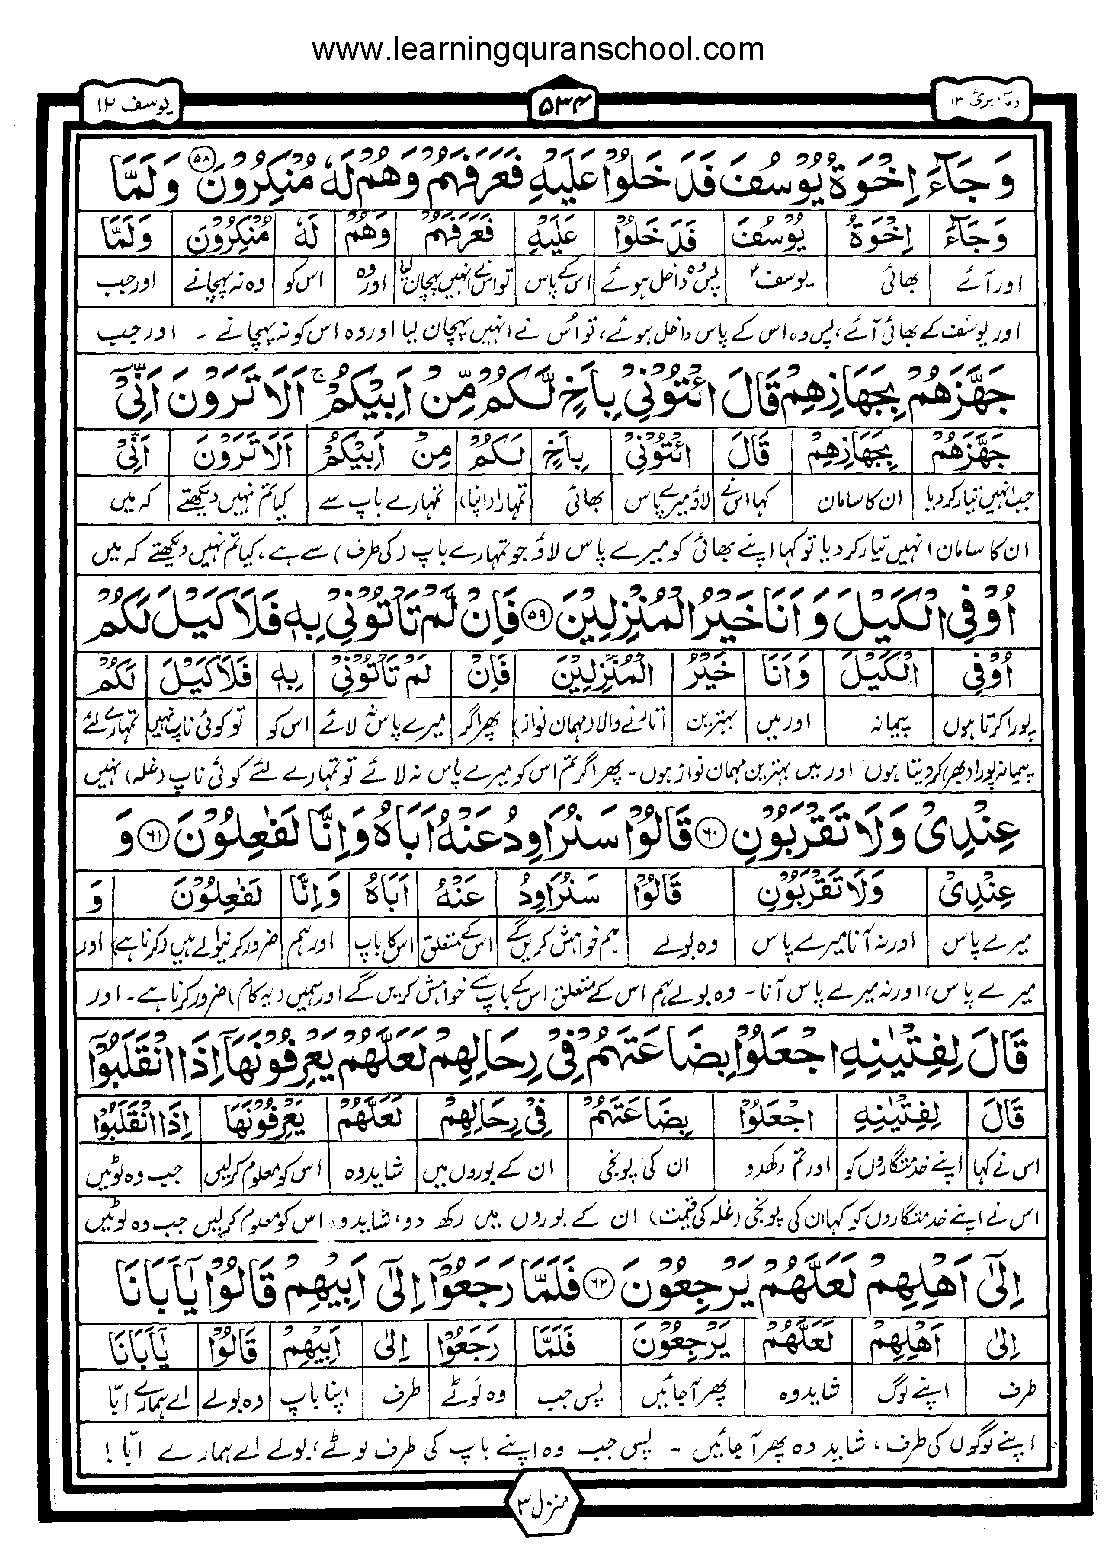 www.learningquranschool.com
وما ابرئ ۱۳
۵۳۴
يوسف ۱۲
وَجَآءَ اِخْوَةُ يُوْسُفَ فَدَخَلُوْا عَلَيْهِ فَعَرَفَهُمْ وَهُمْ لَهٗ مُنْكِرُوْنَ ۵۸ وَلَمَّا
وَجَآءَ اِخْوَةُ يُوْسُفَ فَدَخَلُوْا عَلَيْهِ فَعَرَفَهُمْ وَهُمْ لَهٗ مُنْكِرُوْنَ وَلَمَّا
اور آئے بھائی یوسف پس وہ داخل ہوئے اس کے پاس تو اس نے انہیں پہچان لیا اور وہ اس کو وہ نہ پہچانے اور جب
اور یوسف کے بھائی آئے، پس وہ اس کے پاس داخل ہوئے، تو اس نے انہیں پہچان لیا اور وہ اس کو نہ پہچانے ۔ اور جب
جَهَّزَهُمْ بِجَهَازِهِمْ قَالَ ائْتُوْنِيْ بِاَخٍ لَّكُمْ مِّنْ اَبِيْكُمْ ۚ اَلَا تَرَوْنَ اَنِّيْٓ
جَهَّزَهُمْ بِجَهَازِهِمْ قَالَ ائْتُوْنِيْ بِاَخٍ لَكُمْ مِنْ اَبِيْكُمْ اَلَا تَرَوْنَ اَنِّيْ
جب انہیں تیار کر دیا ان کا سامان کہا اس نے لاؤ میرے پاس بھائی تمہارا (اپنا) تمہارے باپ سے کیا تم نہیں دیکھتے کہ میں
ان کا سامان) انہیں تیار کر دیا تو کہا اپنے بھائی کو میرے پاس لاؤ جو تمہارے باپ (کی طرف) سے ہے، کیا تم نہیں دیکھتے کہ میں
اُوْفِي الْكَيْلَ وَاَنَا خَيْرُ الْمُنْزِلِيْنَ ۵۹ فَاِنْ لَّمْ تَاْتُوْنِيْ بِهٖ فَلَا كَيْلَ لَكُمْ
اُوْفِي الْكَيْلَ وَاَنَا خَيْرُ الْمُنْزِلِيْنَ فَاِنْ لَمْ تَاْتُوْنِيْ بِهٖ فَلَا كَيْلَ لَكُمْ
پورا کرتا ہوں پیمانہ اور میں بہترین اتارنے والا (مہمان نواز) پھر اگر میرے پاس نہ لائے اس کو تو کوئی ناپ نہیں تمہارے لئے
پیمانہ پورا (بھر) کر دیتا ہوں اور میں بہترین مہمان نواز ہوں۔ پھر اگر تم اس کو میرے پاس نہ لائے تو تمہارے لئے کوئی ناپ (غلہ) نہیں
عِنْدِيْ وَلَا تَقْرَبُوْنِ ۶۰ قَالُوْا سَنُرَاوِدُ عَنْهُ اَبَاهُ وَاِنَّا لَفٰعِلُوْنَ ۶۱ وَ
عِنْدِيْ وَلَا تَقْرَبُوْنِ قَالُوْا سَنُرَاوِدُ عَنْهُ اَبَاهُ وَاِنَّا لَفٰعِلُوْنَ وَ
میرے پاس اور نہ آنا میرے پاس وہ بولے ہم خواہش کریں گے اس کے متعلق اس کا باپ اور ہم ضرور کرنیوالے ہیں (کرنا ہے) اور
میرے پاس، اور نہ میرے پاس آنا۔ وہ بولے ہم اس کے متعلق اس کے باپ سے خواہش کریں گے اور ہمیں (یہ کام) ضرور کرنا ہے۔ اور
قَالَ لِفِتْيٰنِهِ اجْعَلُوْا بِضَاعَتَهُمْ فِيْ رِحَالِهِمْ لَعَلَّهُمْ يَعْرِفُوْنَهَآ اِذَا انْقَلَبُوْٓا
قَالَ لِفِتْيٰنِهِ اجْعَلُوْا بِضَاعَتَهُمْ فِيْ رِحَالِهِمْ لَعَلَّهُمْ يَعْرِفُوْنَهَا اِذَا انْقَلَبُوْا
اس نے کہا اپنے خدمتگاروں کو اور تم رکھدو ان کی پونجی ان کے بوروں میں شاید وہ اس کو معلوم کرلیں جب وہ لوٹیں
اس نے اپنے خدمتگاروں کو کہا ان کی پونجی (غلہ کی قیمت) ان کے بوروں میں رکھ دو، شاید وہ اس کو معلوم کرلیں جب وہ لوٹیں
اِلٰٓى اَهْلِهِمْ لَعَلَّهُمْ يَرْجِعُوْنَ ۶۲ فَلَمَّا رَجَعُوْٓا اِلٰٓى اَبِيْهِمْ قَالُوْا يٰٓاَبَانَا
اِلٰى اَهْلِهِمْ لَعَلَّهُمْ يَرْجِعُوْنَ فَلَمَّا رَجَعُوْا اِلٰى اَبِيْهِمْ قَالُوْا يٰٓاَبَانَا
طرف اپنے لوگ شاید وہ پھر آجائیں پس جب وہ لوٹے طرف اپنا باپ وہ بولے اے ہمارے ابا
اپنے لوگوں کی طرف، شاید وہ پھر آجائیں ۔ پس جب وہ اپنے باپ کی طرف لوٹے، بولے اے ہمارے ابا !
منزل ۳